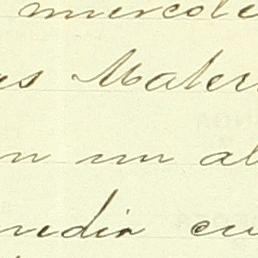 miercole
as Mater
n un al
media cu